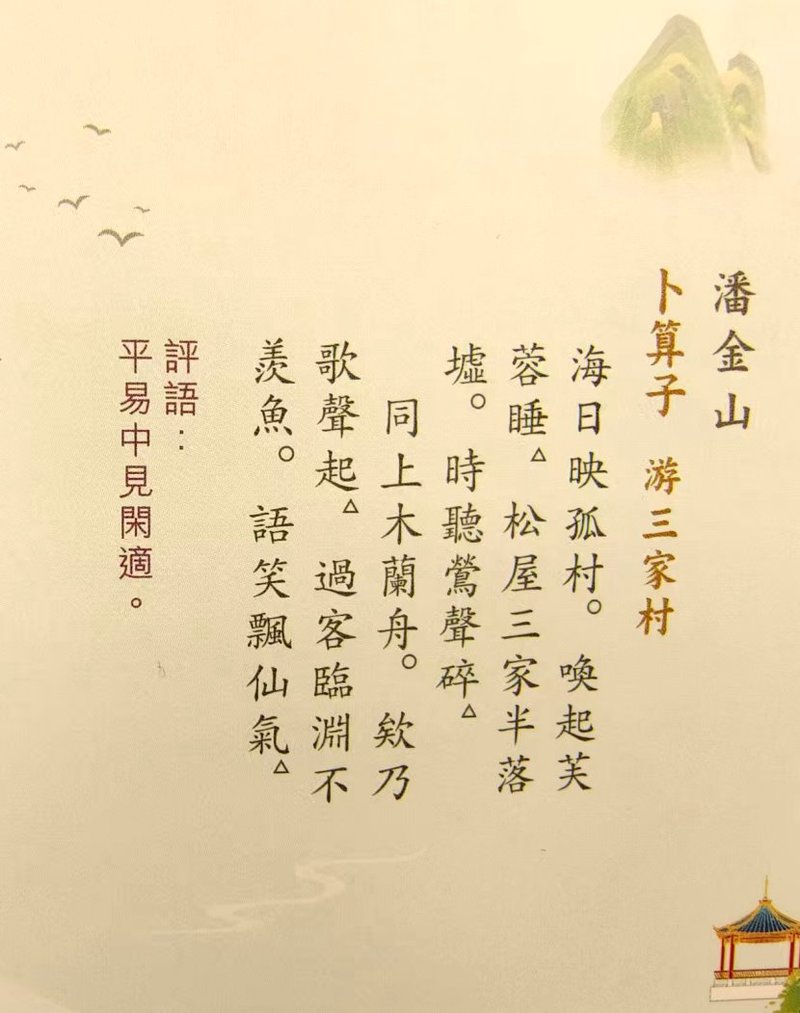 潘金山
卜算子　游三家村
海日映孤村。喚起芙
蓉睡△松屋三家半落
墟。時聽鶯聲碎△
同上木蘭舟。欸乃
歌聲起△過客臨淵不
羨魚。語笑飄仙氣△
評語：
平易中見閑適。